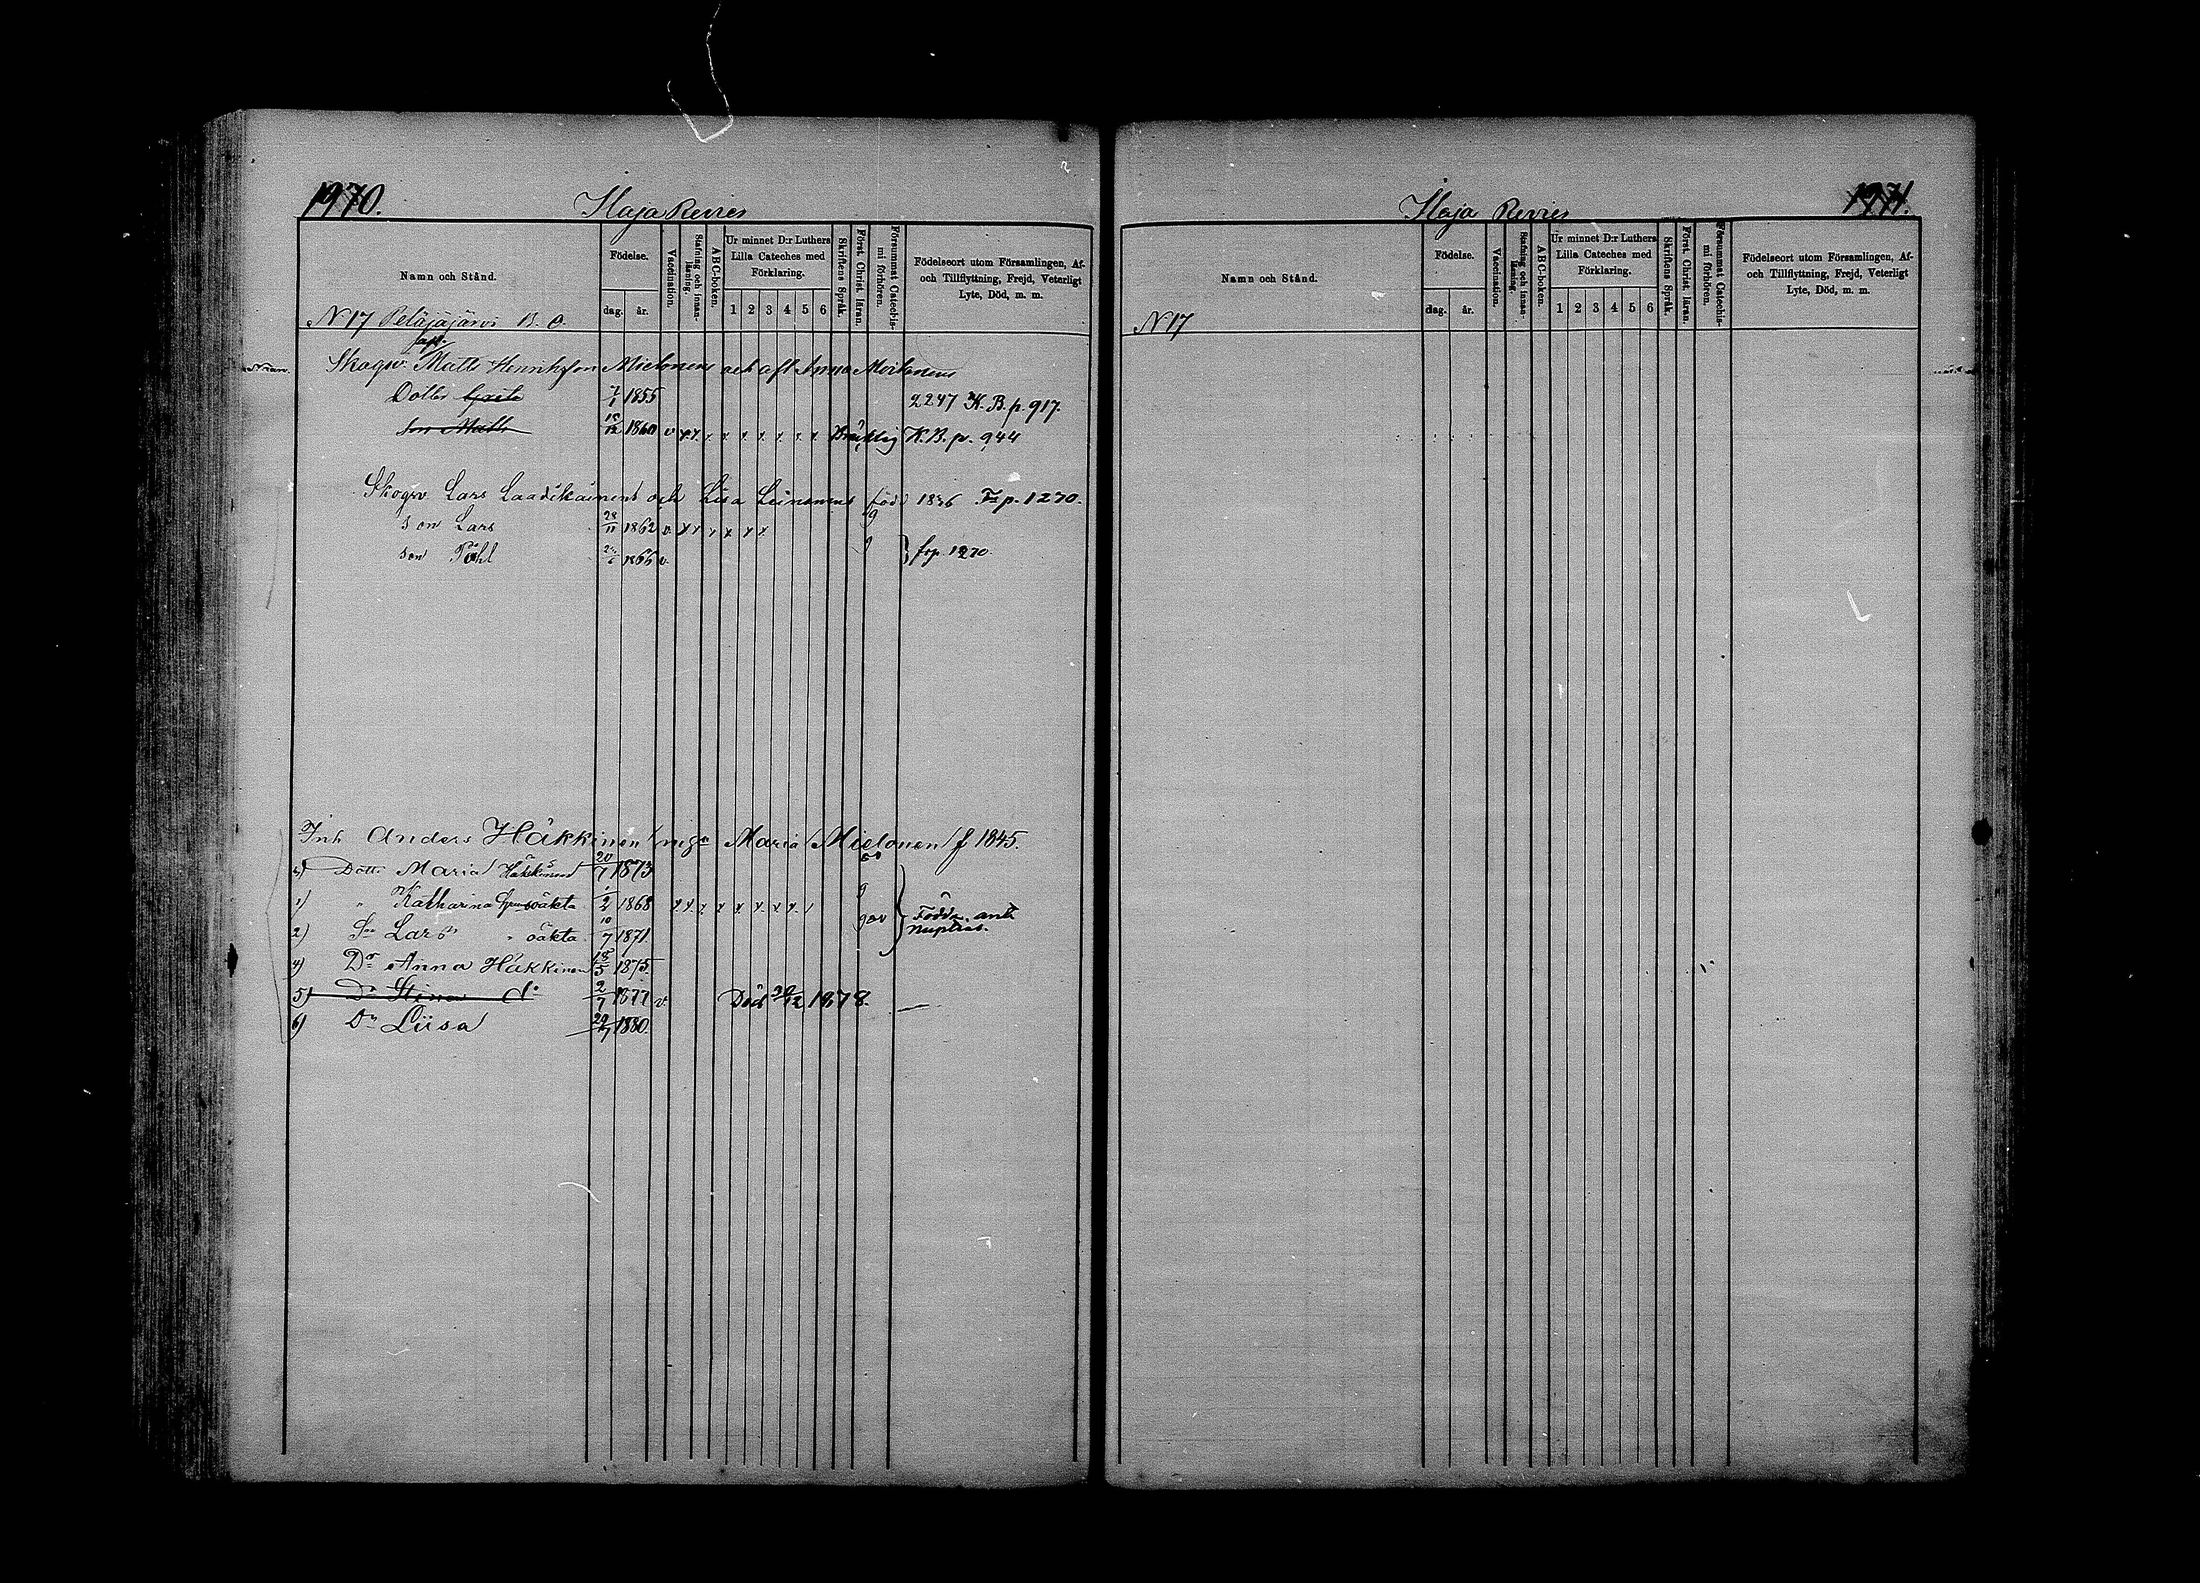 1970.
Ilaja Revier
Namn och Stånd.
Födelse.
dag. år.
Vaccination.
Stafning och innanläsning.
ABC-boken.
Ur minnet D:r Luthers Lilla Cateches med Förklaring.
1 2 3 4 5 6
Skriftens Språk.
Först. Christ. läran.
Försummat Catechismi förhören.
Födelseort utom Församlingen, Af- och Tillflyttning, Frejd, Veterligt Lyte, Död, m. m.
N 17 Peläjäjärvi B. O.
Skogv. Matts Henriksson Mielonens och afl Anna
Dotter Greta 1855 2247 K. B. p. 917.
son Matts 1860 v x x x x x x x x K. B. p. 944
Skogv Lars och Lisa Leinonens född 1836 p. 1270.
son Lars 28/11 1862 v. x x x x x x g
son Påhl 1866 v. g } frp. 1270.
Inh Anders Häkkinen Maria Mielonen f 1845.
Dottr Maria Häkkinen 20/7 1873
1) " Katharina oäkta 1/2 1868 x x x x x x x x g
2) Son Lars " oäkta 10/7 1871. } Födda ante nuptias.
4) Dr Anna Häkkinen 18/5 1875.
5) Dr Stina do 2/7 1877 v. Död 30/12 1878.
6) Dr Liisa 29/7 1880.
1971.
Ilaja Revier
Namn och Stånd.
Födelse.
dag. år.
Vaccination.
Stafning och innanläsning.
ABC-boken.
Ur minnet D:r Luthers Lilla Cateches med Förklaring.
1 2 3 4 5 6
Skriftens Språk.
Först. Christ. läran.
Försummat Catechismi förhören.
Födelseort utom Församlingen, Af- och Tillflyttning, Frejd, Veterligt Lyte, Död, m. m.
N 17